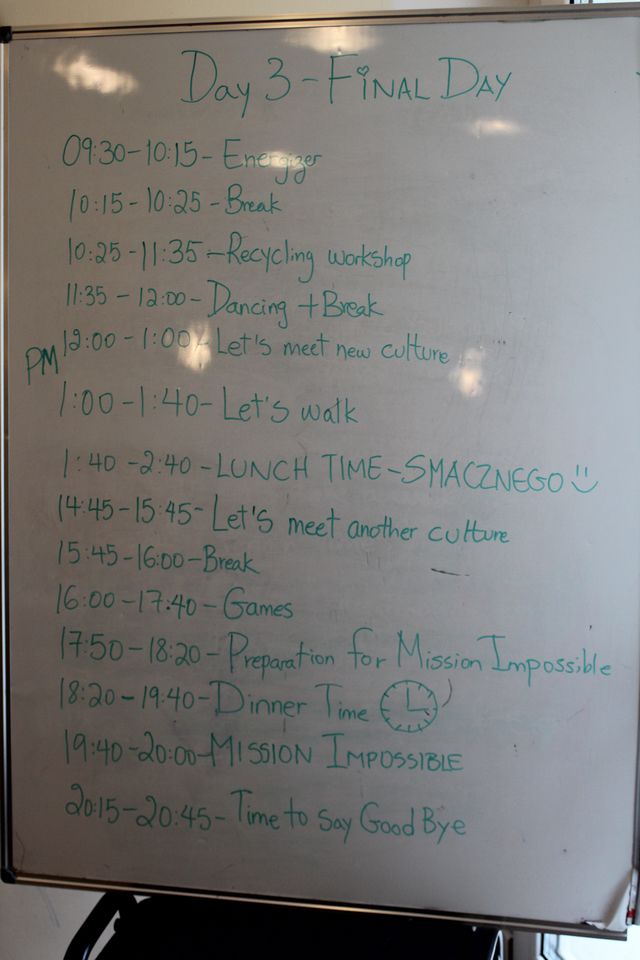 Day 3 - FINAL DAY
09:30-10:15- Energizer
10:15 - 10:25 - Break
10:25 - 11:35 - Recycling workshop
11:35 - 12:00 - Dancing + Break
PM 12:00 - 1:00 - Let's meet new culture
1:00 - 1:40 - Let's walk
1:40 - 2:40 - LUNCH TIME - SMACZNEGO :)
14:45 - 15:45 - Let's meet another culture
15:45 - 16:00 - Break
16:00 - 17:40 - Games
17:50 - 18:20 - Preparation for Mission Impossible
18:20 - 19:40 - Dinner Time
19:40 - 20:00 - MISSION IMPOSSIBLE
20:15 - 20:45 - Time to say Good Bye